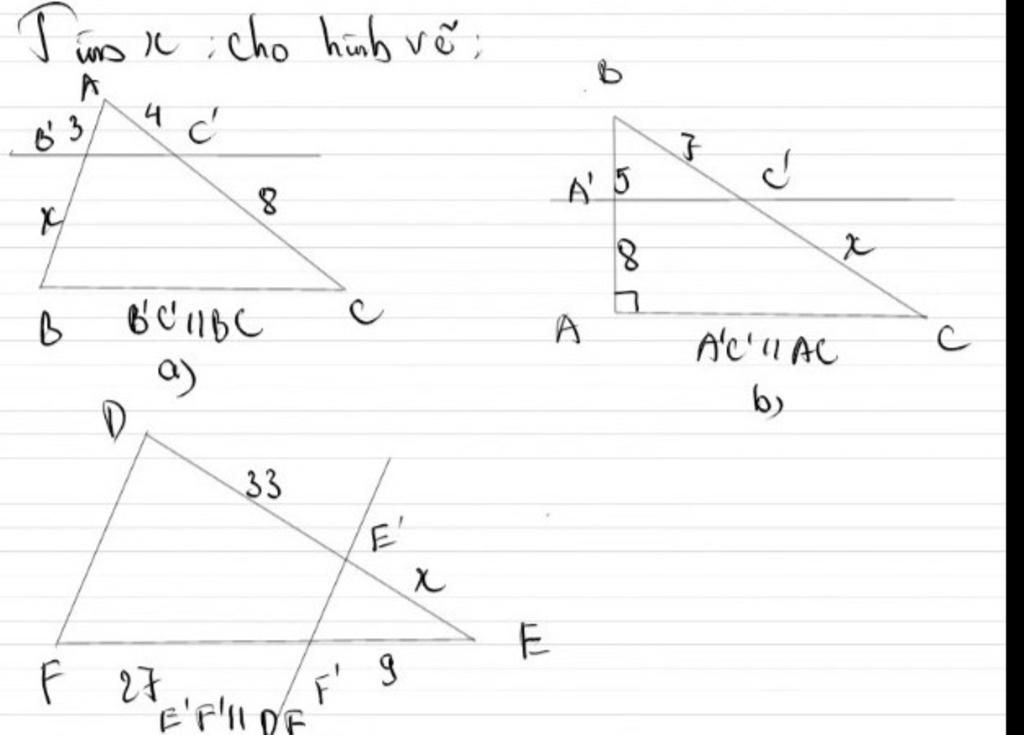 Tìm x : cho hình vẽ :
A
B' 3 4 C'
x 8
B C
B'C' // BC
a)
B
7
A' 5 C'
8 x
A C
A'C' // AC
b)
D
33
E'
x
F 27 F' 9 E
E'F' // DF